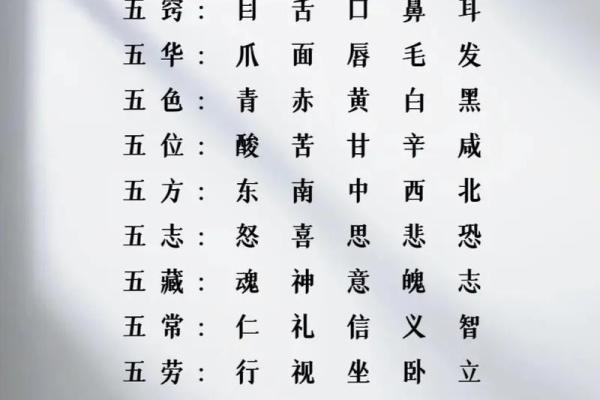 五窍：目舌口鼻耳
五华：爪面唇毛发
五色：青赤黄白黑
五位：酸苦甘辛咸
五方：东南中西北
五志：怒喜思悲恐
五藏：魂神意魄志
五常：仁礼信义智
五劳：行视坐卧立